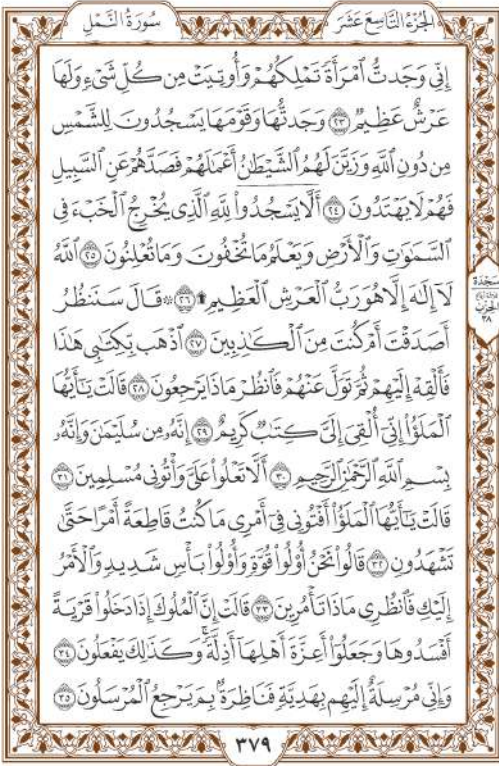 سُورَةُ النَّمْلِ
الجُزْءُ التَّاسِعَ عَشَرَ
إِنِّي وَجَدتُّ ٱمْرَأَةً تَمْلِكُهُمْ وَأُوتِيَتْ مِن كُلِّ شَىْءٍ وَلَهَا
عَرْشٌ عَظِيمٌ ٢٣ وَجَدتُّهَا وَقَوْمَهَا يَسْجُدُونَ لِلشَّمْسِ
مِن دُونِ ٱللَّهِ وَزَيَّنَ لَهُمُ ٱلشَّيْطَٰنُ أَعْمَٰلَهُمْ فَصَدَّهُمْ عَنِ ٱلسَّبِيلِ
فَهُمْ لَا يَهْتَدُونَ ٢٤ أَلَّا يَسْجُدُوا۟ لِلَّهِ ٱلَّذِى يُخْرِجُ ٱلْخَبْءَ فِى
ٱلسَّمَٰوَٰتِ وَٱلْأَرْضِ وَيَعْلَمُ مَا تُخْفُونَ وَمَا تُعْلِنُونَ ٢٥ ٱللَّهُ
لَآ إِلَٰهَ إِلَّا هُوَ رَبُّ ٱلْعَرْشِ ٱلْعَظِيمِ ۩ ٢٦ ۞ قَالَ سَنَنظُرُ
أَصَدَقْتَ أَمْ كُنتَ مِنَ ٱلْكَٰذِبِينَ ٢٧ ٱذْهَب بِّكِتَٰبِى هَٰذَا
فَأَلْقِهْ إِلَيْهِمْ ثُمَّ تَوَلَّ عَنْهُمْ فَٱنظُرْ مَاذَا يَرْجِعُونَ ٢٨ قَالَتْ يَٰٓأَيُّهَا
ٱلْمَلَؤُا۟ إِنِّىٓ أُلْقِىَ إِلَىَّ كِتَٰبٌ كَرِيمٌ ٢٩ إِنَّهُۥ مِن سُلَيْمَٰنَ وَإِنَّهُۥ
بِسْمِ ٱللَّهِ ٱلرَّحْمَٰنِ ٱلرَّحِيمِ ٣٠ أَلَّا تَعْلُوا۟ عَلَىَّ وَأْتُونِى مُسْلِمِينَ ٣١
قَالَتْ يَٰٓأَيُّهَا ٱلْمَلَؤُا۟ أَفْتُونِى فِىٓ أَمْرِى مَا كُنتُ قَاطِعَةً أَمْرًا حَتَّىٰ
تَشْهَدُونِ ٣٢ قَالُوا۟ نَحْنُ أُو۟لُوا۟ قُوَّةٍ وَأُو۟لُوا۟ بَأْسٍ شَدِيدٍ وَٱلْأَمْرُ
إِلَيْكِ فَٱنظُرِى مَاذَا تَأْمُرِينَ ٣٣ قَالَتْ إِنَّ ٱلْمُلُوكَ إِذَا دَخَلُوا۟ قَرْيَةً
أَفْسَدُوهَا وَجَعَلُوٓا۟ أَعِزَّةَ أَهْلِهَآ أَذِلَّةً ۖ وَكَذَٰلِكَ يَفْعَلُونَ ٣٤
وَإِنِّى مُرْسِلَةٌ إِلَيْهِم بِهَدِيَّةٍ فَنَاظِرَةٌۢ بِمَ يَرْجِعُ ٱلْمُرْسَلُونَ ٣٥
سَجْدَة
الحِزْبُ
٣٨
٣٧٩